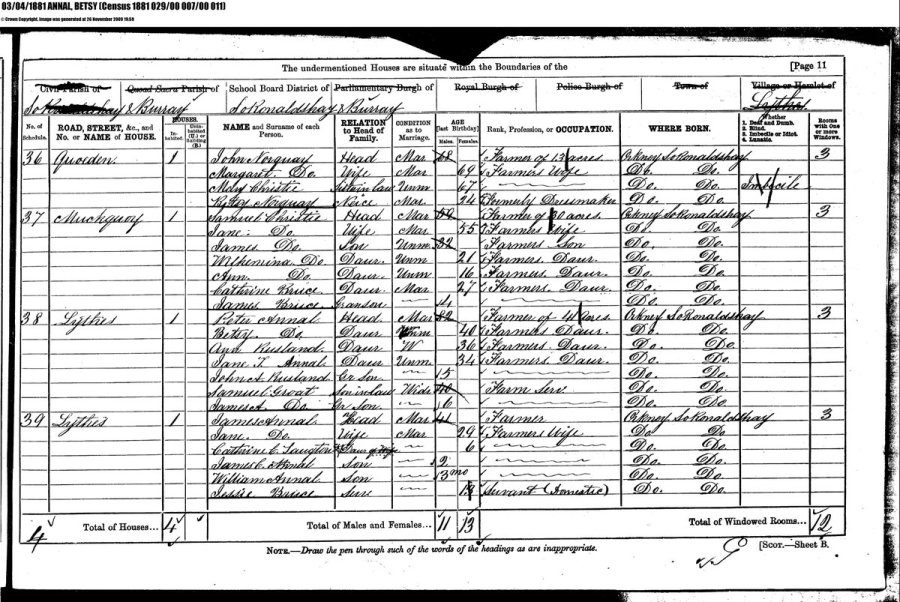 03/04/1881 ANNAL, BETSY (Census 1881 029/00 007/00 011)
© Crown Copyright. Image was generated at 26 November 2009 19:58
The undermentioned Houses are situate within the Boundaries of the [Page 11
Civil Parish of Quoad Sacra Parish of School Board District of Parliamentary Burgh of Royal Burgh of Police Burgh of Town of Village or Hamlet of
So Ronaldshay & Burray So Ronaldshay & Burray Lythes
No. of Schedule. ROAD, STREET, &c., and No. or NAME of HOUSE. HOUSES. Inhabited. Uninhabited (U.) or building (B.) NAME and Surname of each Person. RELATION to Head of Family. CONDITION as to Marriage. AGE [last Birthday] Males. Females. Rank, Profession, or OCCUPATION. WHERE BORN. Whether 1. Deaf and Dumb. 2. Blind. 3. Imbecile or Idiot. 4. Lunatic. Rooms with One or more Windows.
36 Quoeden. 1 John Norquay Head Mar Farmer of 13 acres Orkney So Ronaldshay 3
Margaret Do. Wife Mar 69 Farmers Wife Do. Do.
Mary Christie Sister in law Unm 67 Do. Do. Imbecile
Norquay Neice Mar. 24 Formerly Dressmaker Do. Do.
37 Muckquoy 1 Samuel Christie Head Mar 59 Farmer of 30 acres Orkney So Ronaldshay 3
Jane Do Wife Mar 55 Farmers Wife Do. Do.
James Do. Son Unm 32 Farmers Son Do. Do.
Wilhemina Do. Daur. Unm 21 Farmers Daur. Do. Do.
Ann. Do. Daur. Unm 16 Farmers Daur. Do. Do.
Cathrine Bruce Daur Mar 27 Farmers Daur. Do. Do.
James Bruce Granson 4 Do. Do.
38 Lythes 1 Peter Annal Head Mar 82 Farmer of 4 acres Orkney So Ronaldshay 3
Betsy Do Daur Unm 40 Farmers Daur. Do. Do.
Ann Rusland Daur W 36 Farmers Daur. Do. Do.
Jane T Annal Daur Unm 34 Farmers Daur Do. Do.
John A Rusland Gr Son 15 Do. Do.
Samuel Groat Son in law Widr 40 Farm Serv. Do. Do.
James A. Do. Gr Son. 6 Do. Do.
39 Lythes 1 James Annal Head Mar 41 Farmer Orkney So Ronaldshay 3
Jane. Do. Wife Mar 29 Farmers Wife Do. Do.
Cathrine C. Daur of Wife 6 Do. Do.
James C Annal Son 2 Do. Do.
William Annal Son 13 mo Do. Do.
Jessie Bruce Serv Servant (Domestic) Do. Do.
4 Total of Houses... 4 Total of Males and Females... 11 13 Total of Windowed Rooms... 12
NOTE.—Draw the pen through such of the words of the headings as are inappropriate. [Scot.—Sheet B.